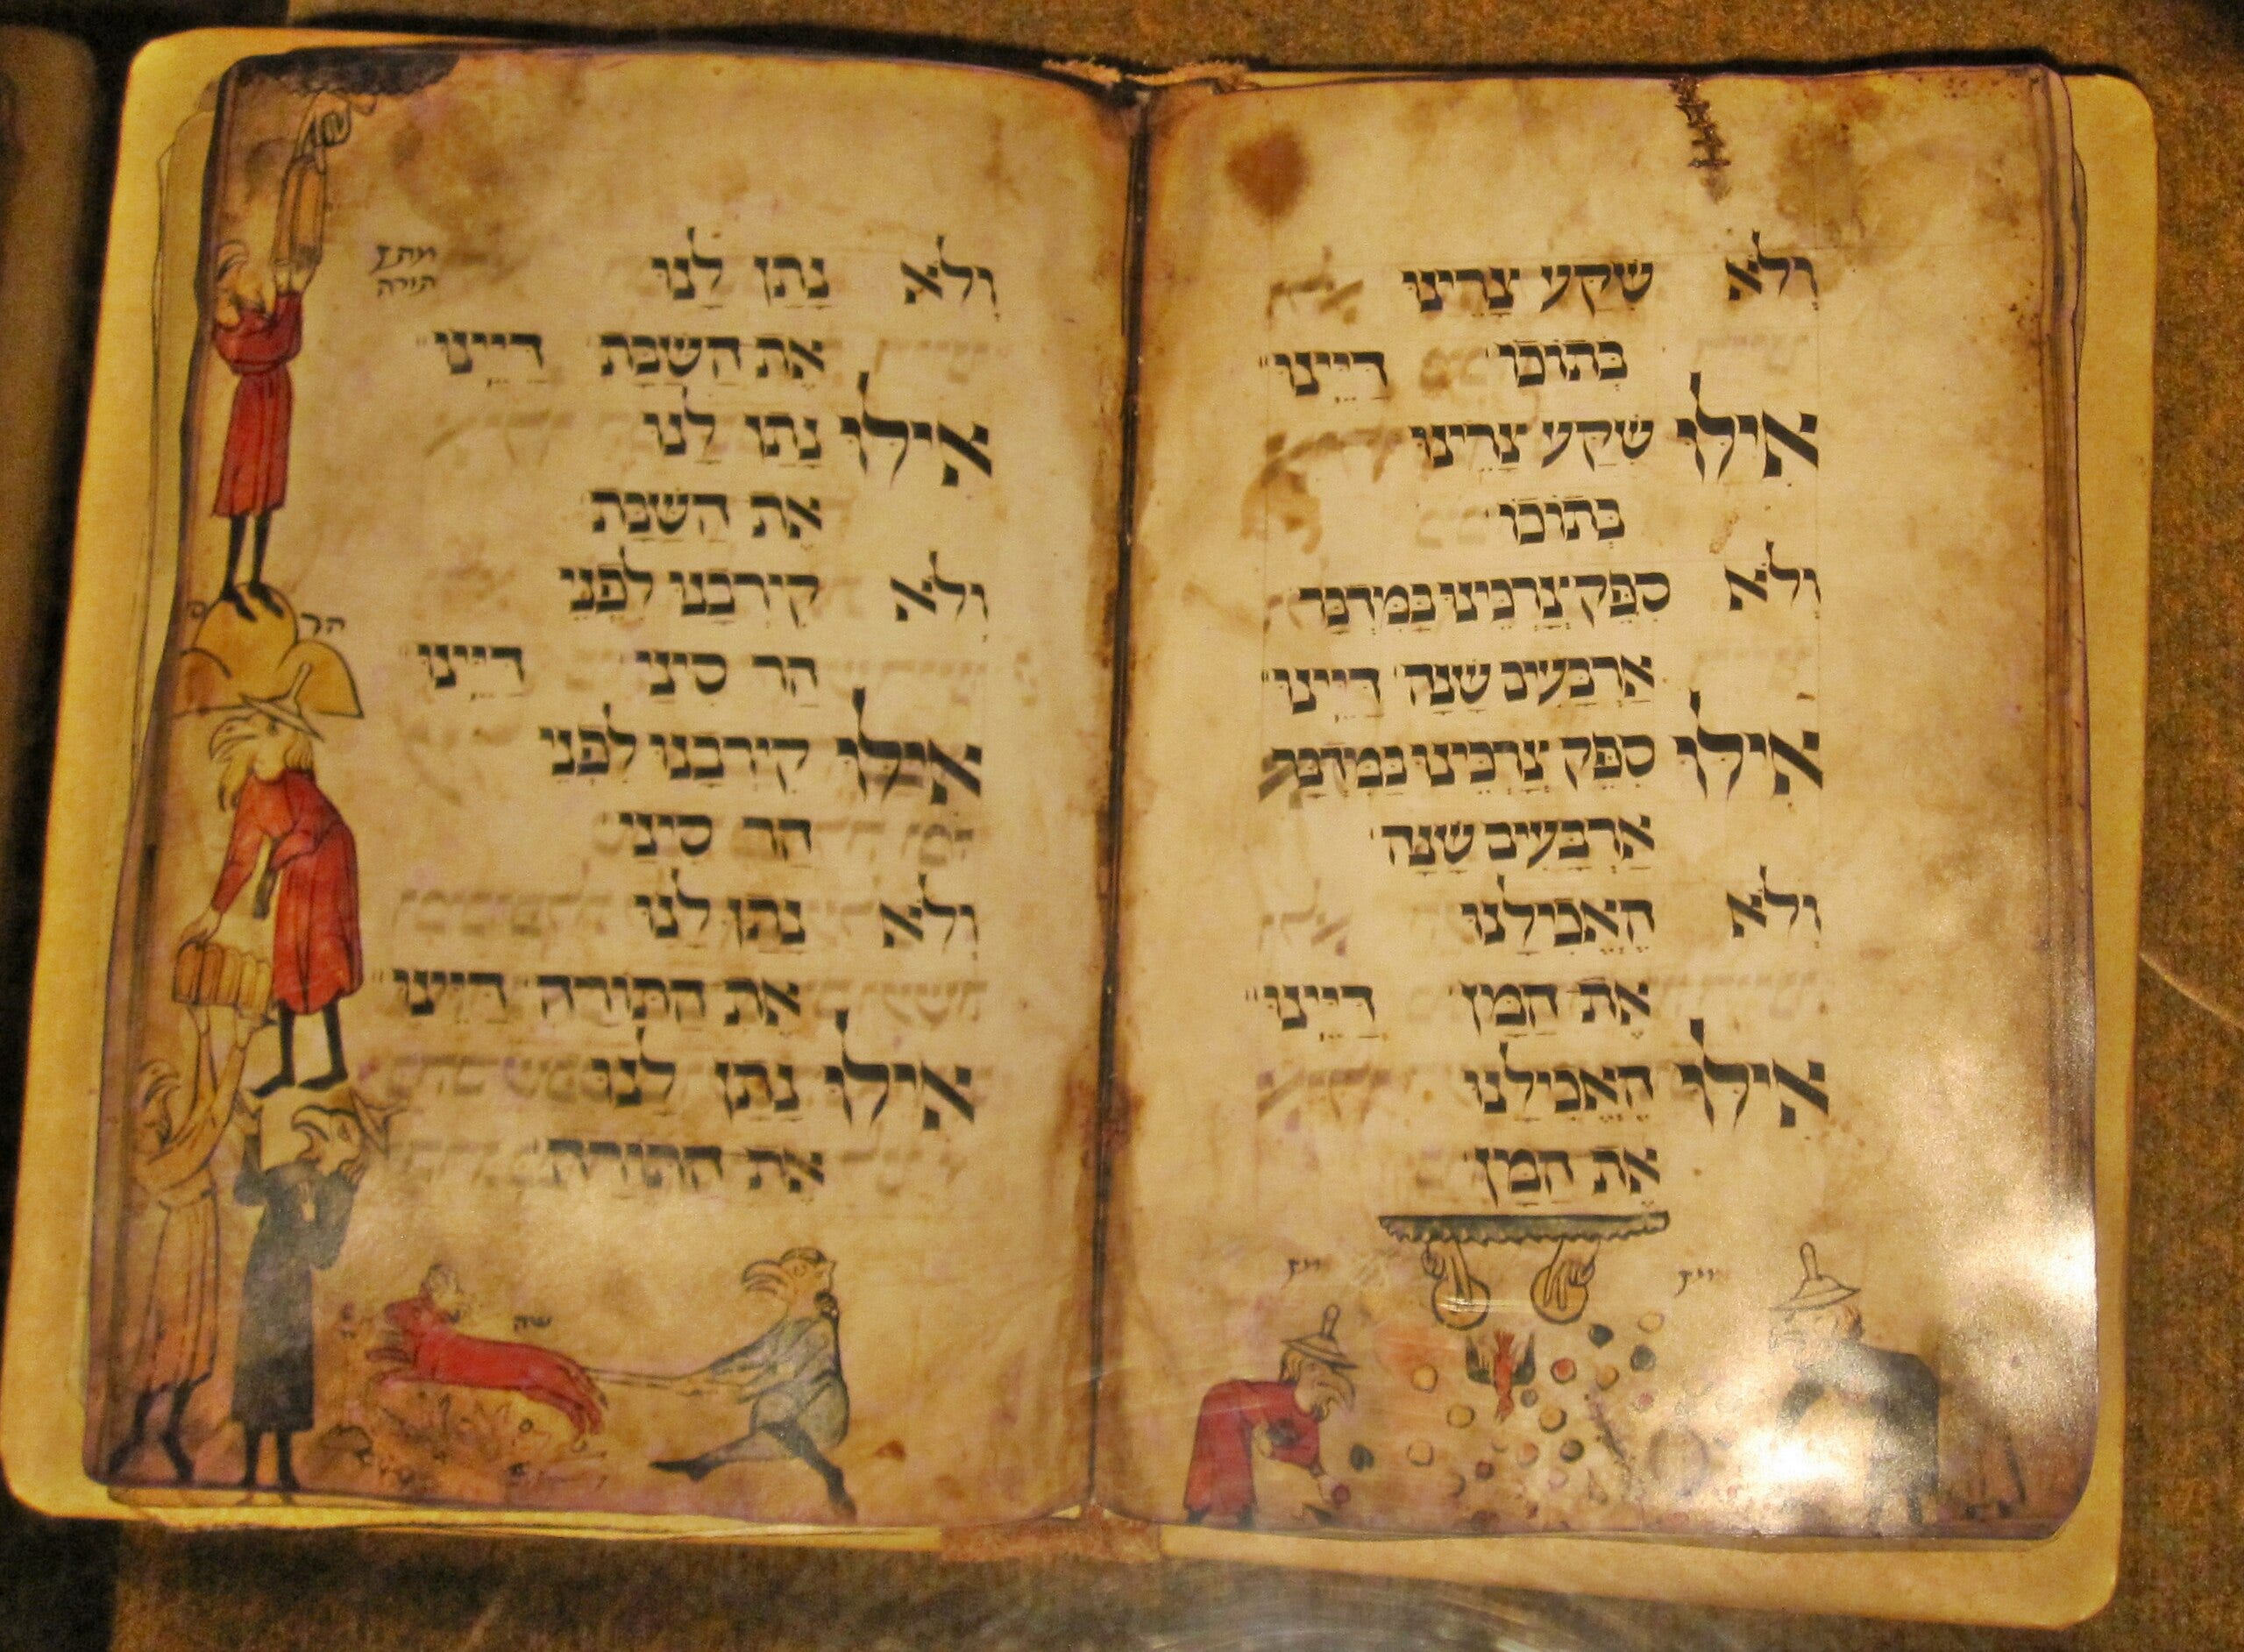 ולא שקע צרינו
בתוכו דיינו
אילו שקע צרינו
בתוכו
ולא ספק צרכינו במדבר
ארבעים שנה דיינו
אילו ספק צרכינו במדבר
ארבעים שנה
ולא האכילנו
את המן דיינו
אילו האכילנו
את המן
מן
מן
ולא נתן לנו
את השבת דיינו
אילו נתן לנו
את השבת
ולא קירבנו לפני
הר סיני דיינו
אילו קירבנו לפני
הר סיני
ולא נתן לנו
את התורה דיינו
אילו נתן לנו
את התורה
מתן
תורה
הר
שה